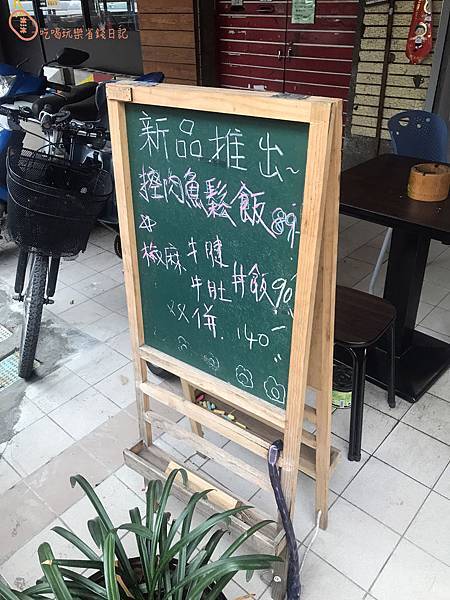 吃喝玩樂省錢日記
新品推出~
控肉魚鬆飯89.
椒麻牛腱
牛肚丼飯90
双併.140